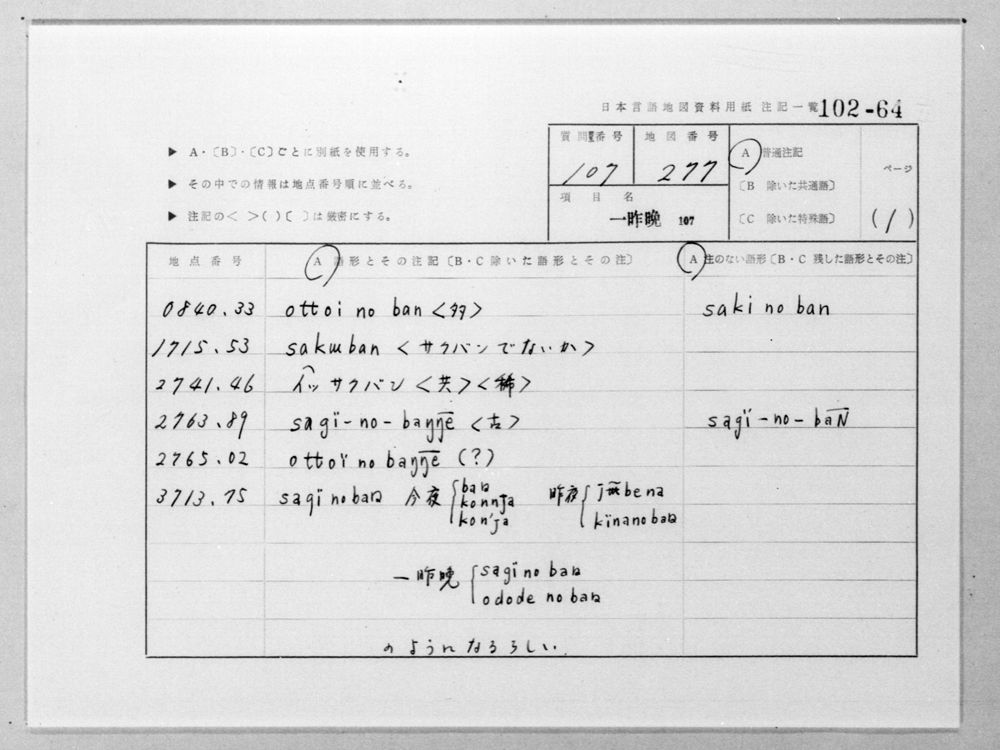 日本言語地図資料用紙 注記一覧 102-64
▶ A・〔B〕・〔C〕ごとに別紙を使用する。
▶ その中での情報は地点番号順に並べる。
▶ 注記の< >( )〔 〕は厳密にする。
質問番号 地図番号 A 普通注記 ページ
107 277 〔B 除いた共通語〕
項目名
一昨晩 107 〔C 除いた特殊語〕 (1)
地点番号 A 語形とその注記〔B・C除いた語形とその注〕 A 注のない語形〔B・C 残した語形とその注〕
0840.33 ottoi no ban <多> saki no ban
1715.53 sakɯban <サクバンでないか>
2741.46 イッサクバン <共><稀>
2763.89 sagï-no-baŋŋē <古> sagï-no-baN̄
2765.02 ottoï no baŋŋē (?)
3713.75 sagïnobaɴ 今夜 { baɴ 昨夜
konnja
kon'ja kïnanobaɴ
一昨晩 { sagïnobaɴ
odode nobaɴ
のようになるらしい.